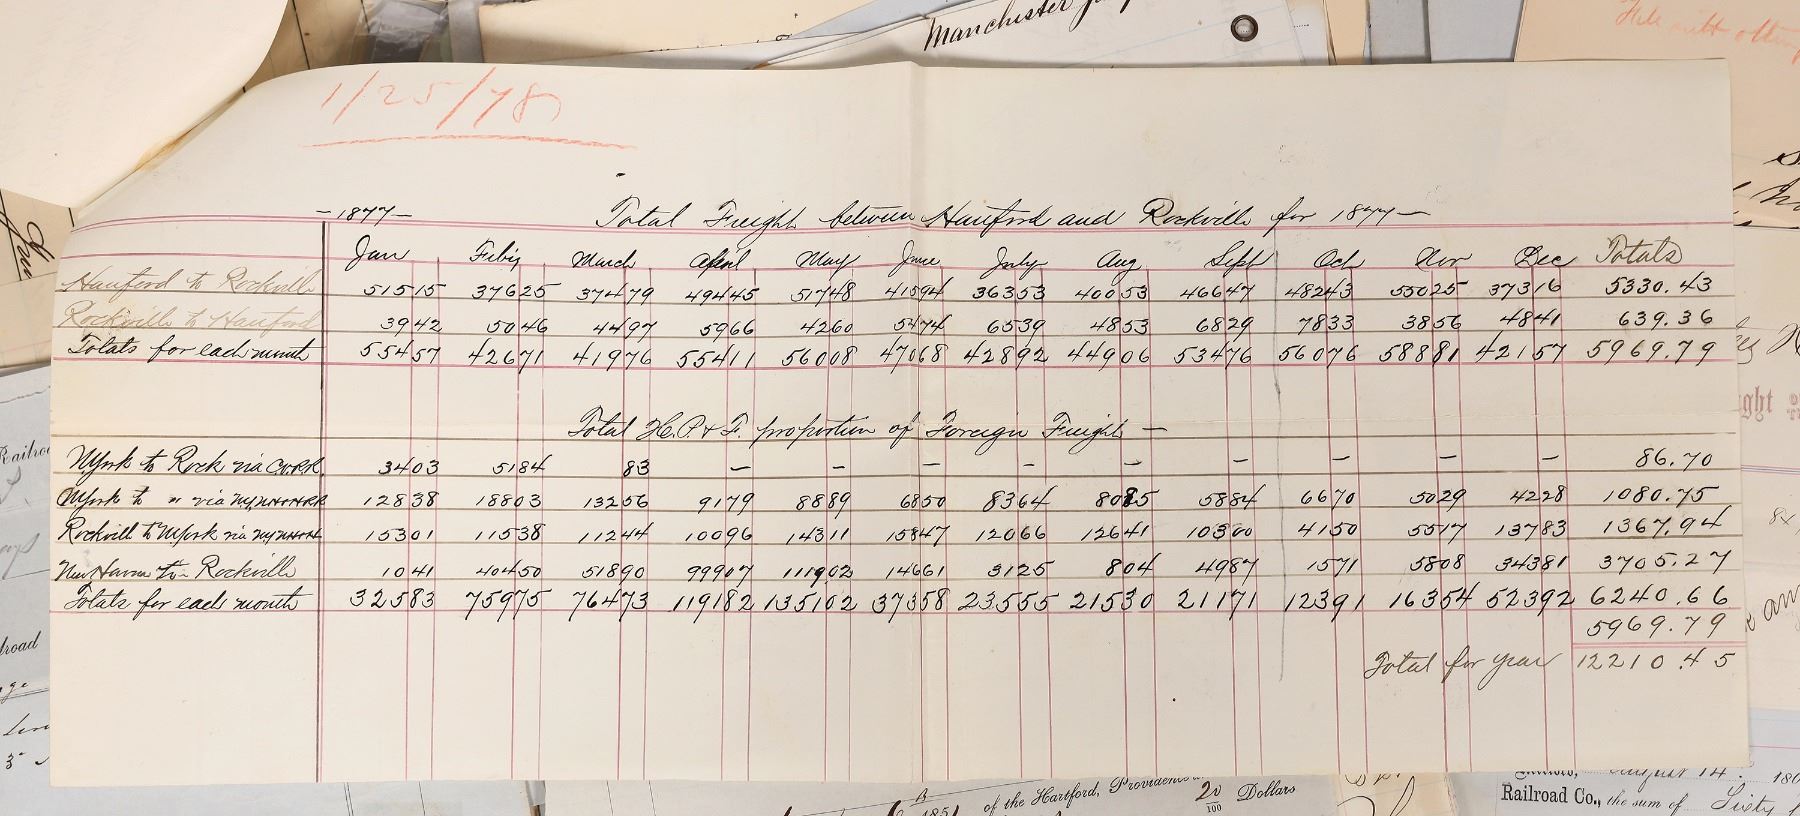 Manchester
1/25/78
-1877-
Total Freight between Hartford and Rockville for 1877-
Jan Feb'y March April May June July Aug Sept Oct Nov Dec Totals
Hartford to Rockville 51515 37625 37479 49445 51748 41594 36353 40053 46647 48243 55025 37316 5330.43
Rockville to Hartford 3942 5046 4497 5966 4260 5474 6539 4853 6829 7833 3856 4841 639.36
Totals for each month 55457 42671 41976 55411 56008 47068 42892 44906 53476 56076 58881 42157 5969.79
Total H.P.&F. proportion of Foreign Freight -
N York to Rock via C.V.R.R. 3403 5184 83 - - - - - - - - - 86.70
N York to " via N.Y.N.H.H.R.R. 12838 18803 13256 9179 8889 6850 8364 8085 5884 6670 5029 4228 1080.75
Rockvill to N York via N.Y.N.H.H. 15301 11538 11244 10096 14311 15847 12066 12641 10300 4150 5517 13783 1367.94
New Haven to - Rockville 1041 40450 51890 99907 111902 14661 3125 804 4987 1571 5808 34381 3705.27
Totals for each month 32583 75975 76473 119182 135102 37358 23555 21530 21171 12391 16354 52392 6240.66
5969.79
Total for year 12210.45
of the Hartford, Providence
20/100 Dollars
August 14
Railroad Co., the sum of Sixty